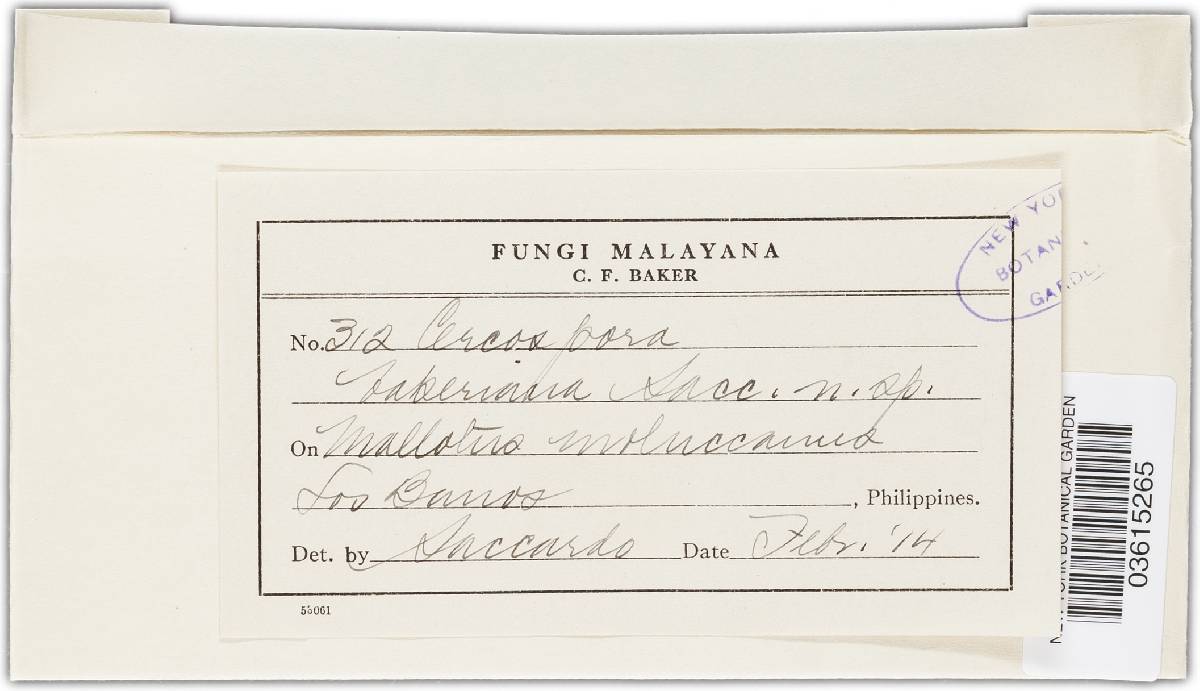 FUNGI MALAYANA
C. F. BAKER
No. 312 Cercospora
bakeriana Sacc. n. sp.
On Mallotus moluccanus
Los Banos, Philippines.
Det. by Saccardo Date Febr. '14
55061
NEW YOR
BOTAN
GARDE
NEW YORK BOTANICAL GARDEN
03615265